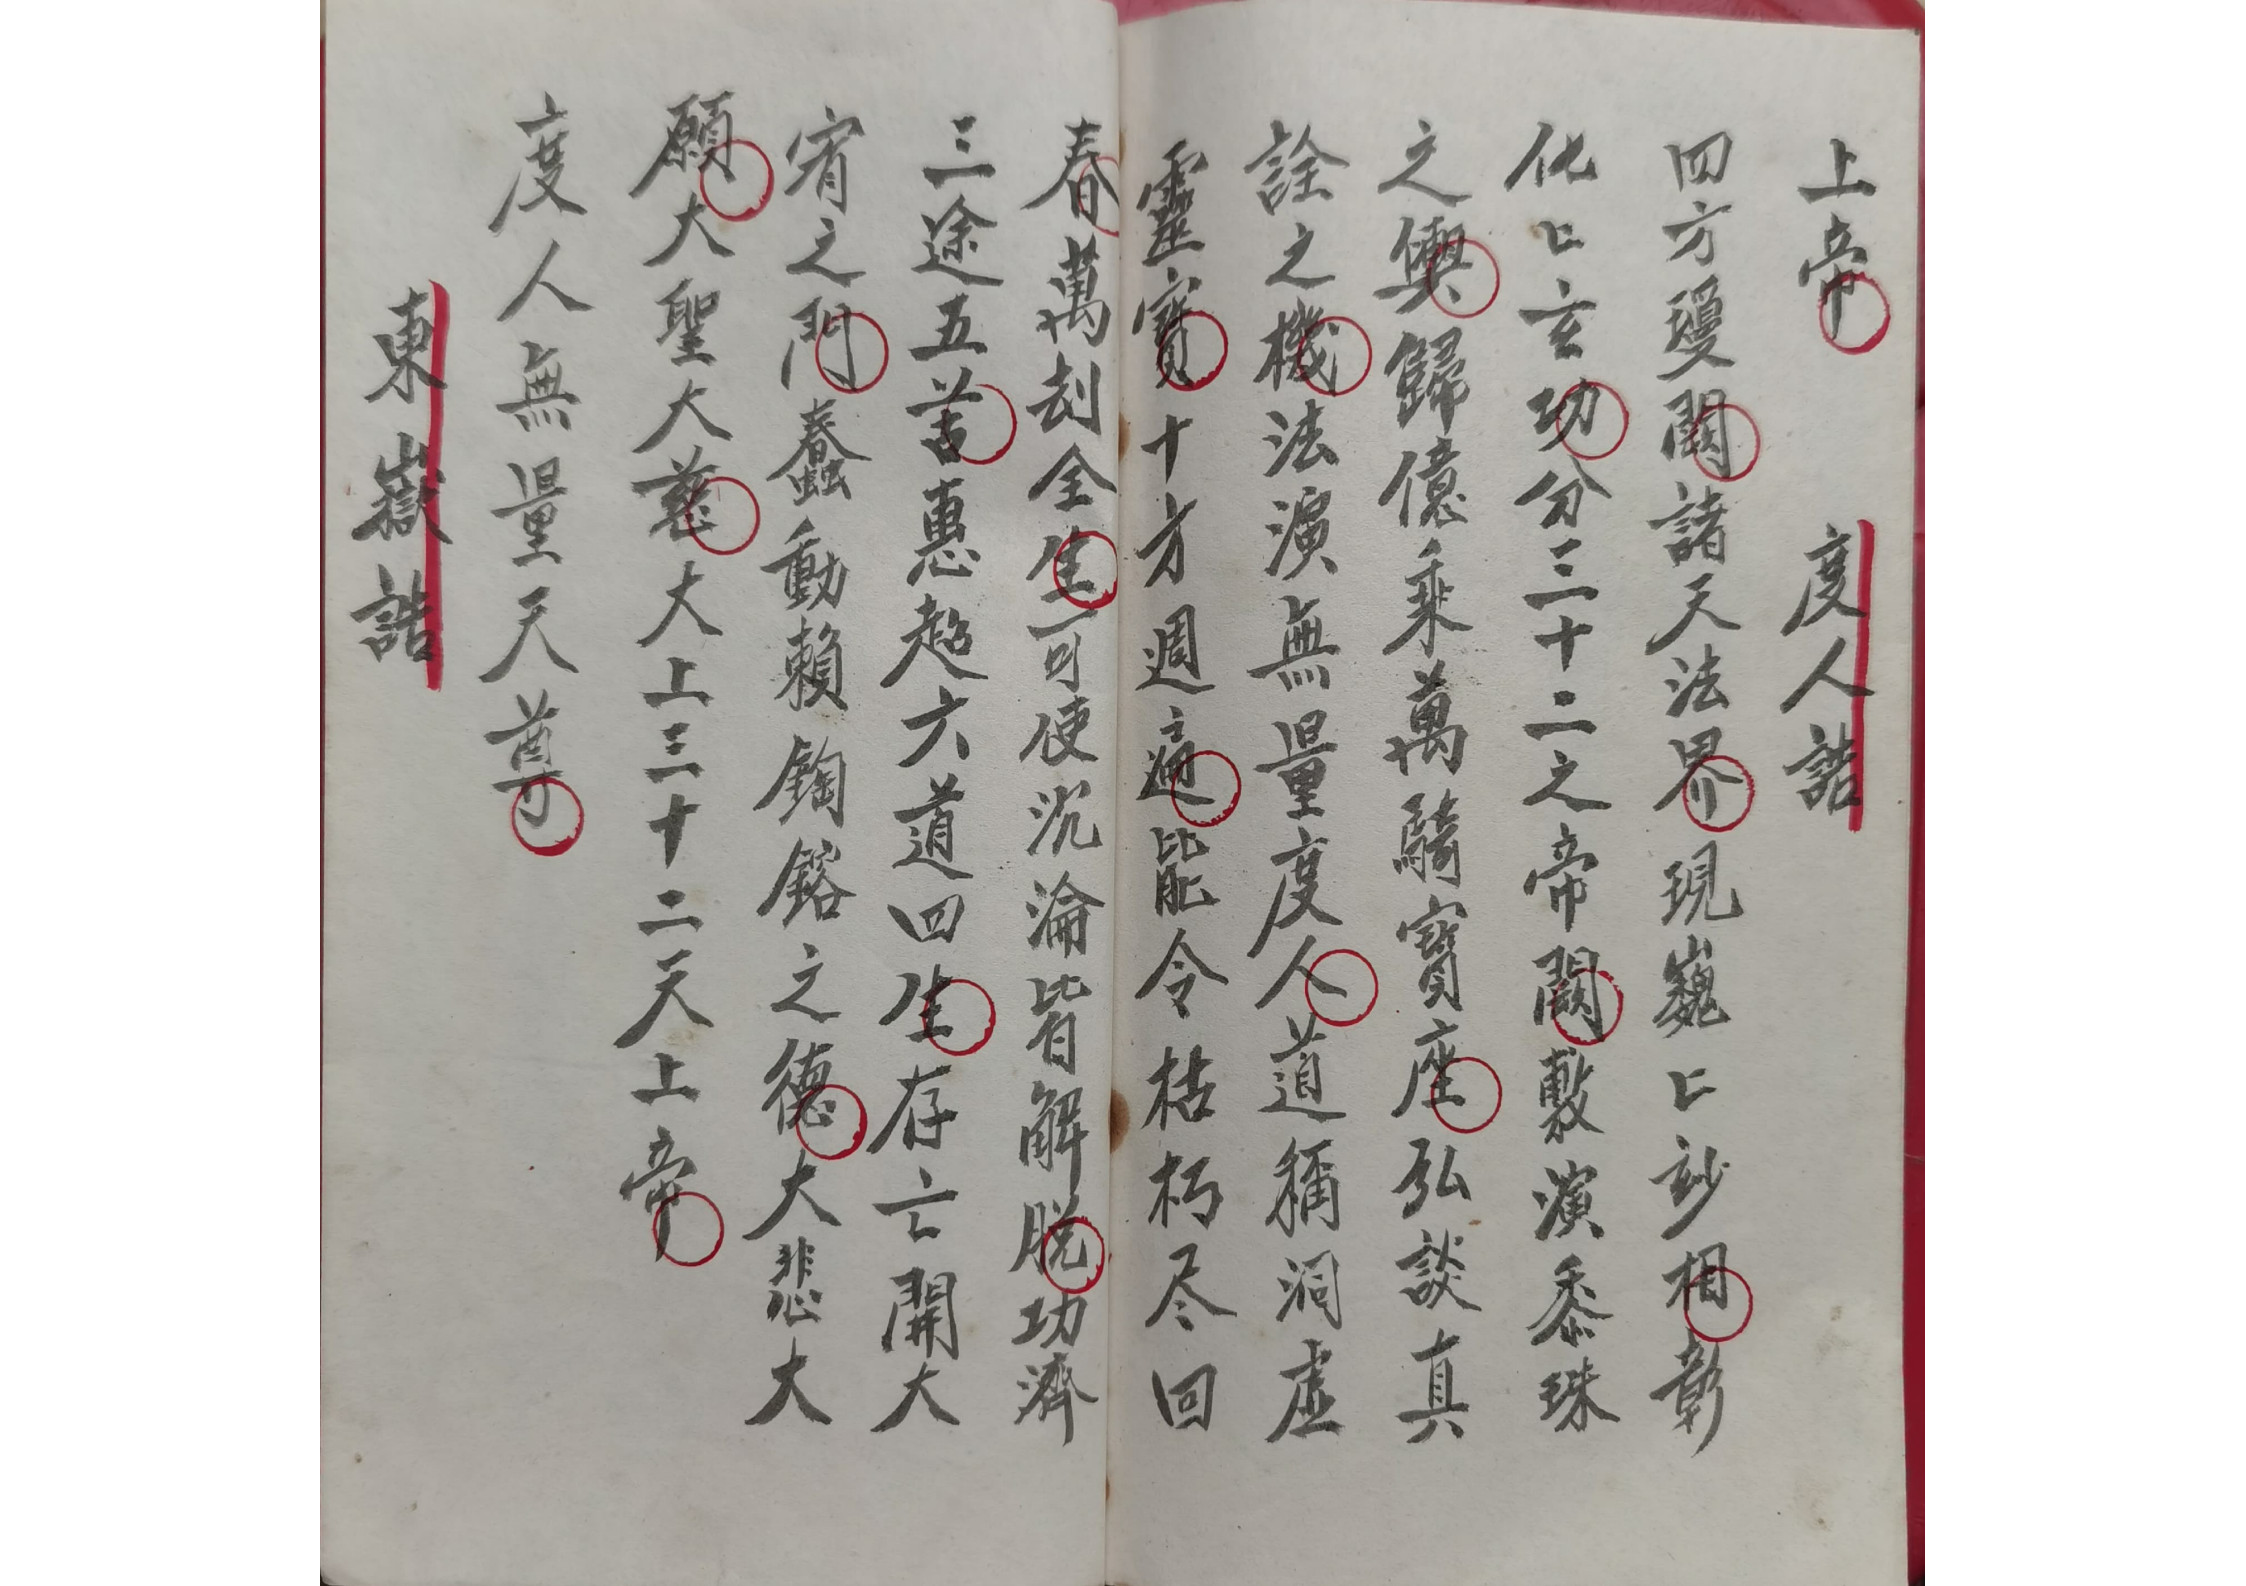 上帝 度人誥
四方瓊闕諸天法界現巍〻玅相彰
化〻玄功分三十二之帝闕敷演黍珠
之輿歸億乘萬騎寶座弘談真
詮之機法演無量度人道稱洞虛
靈寶十方週遍能令枯朽尽回
春萬刦全生可使沉淪皆解脱功濟
三途五苦惠超六道四生存亡開大
宥之門蠢動賴鈎鎔之德大悲大
願大聖大慈大上三十二天上帝
度人無量天尊
東嶽誥